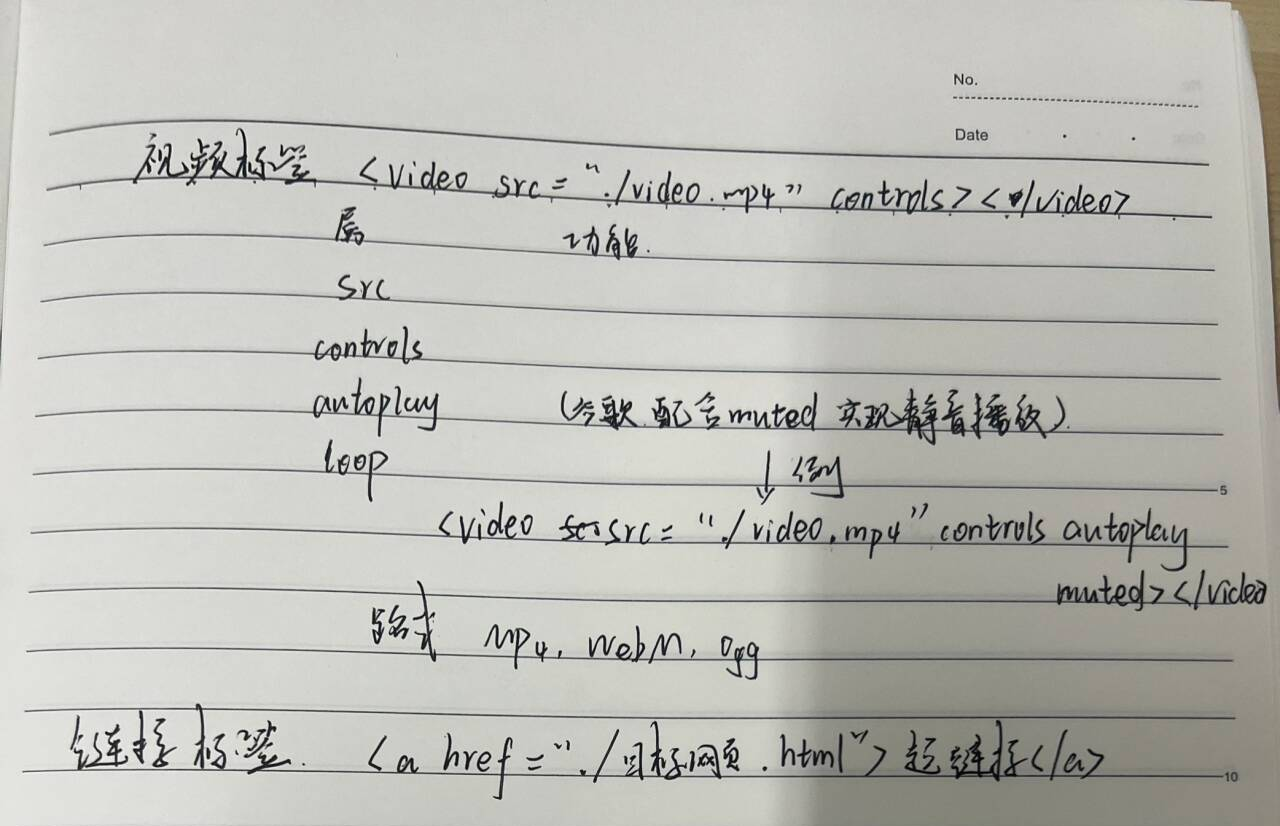 No.
Date
视频标签 <video src="./video.mp4" controls></video>
属 功能.
src
controls
autoplay (谷歌配合muted 实现静音播放)
loop ↓例
5
<video src="./video.mp4" controls autoplay
muted></video
格式 Mp4, WebM, Ogg
链接标签. <a href="./目标网页.html">超链接</a>
10